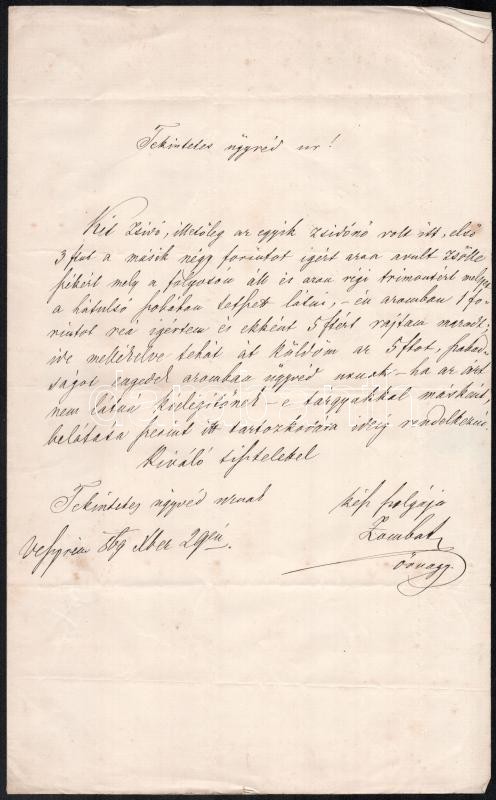 Tekintetes ügyvéd ur!
Két Zsidó, illetőleg az egyik zsidónő volt itt, első
3 ftot a másik négy forintot igért azon avult
mely a folyosón áll és azon régi
a hátulsó szobában tetszett látni, – én azomban 1 fo-
rintot reá igértem és ekként 5 ftért rajtam maradt;
ide mellékelve tehát át küldöm az 5 ftot, szabad-
ságot engedek azomban ügyvéd urnak – ha az árt
nem látná kielégitőnek – e tárgyakkal másként,
belátása szerint itt tartozkodásom ideig rendelkezni.
Kiváló tisztelettel
Tekintetes ügyvéd urnak
kész szolgája
Veszprém 869 Xber 29én.
Zombat
őrnagy